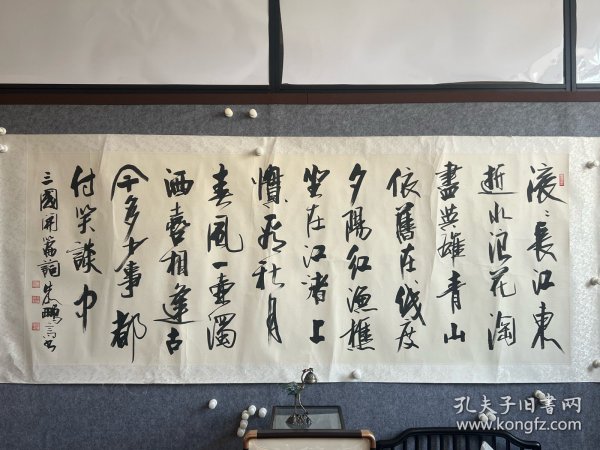 滚〻長江東
逝水浪花淘
盡英雄青山
依舊在幾度
夕陽紅漁樵
坐在江渚上
慣看秋月
春風一壺濁
酒喜相逢古
今多少事都
付笑談中
三國開篇詞
孔夫子旧書网
www.kongfz.com